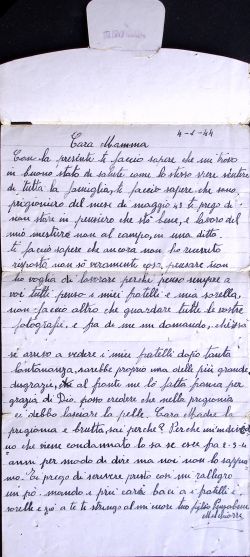 4-2-44
Cara Mamma
Con la presente ti faccio sapere che mi trovo
in buono stato di salute come lo stesso spero sentire
di tutta la famiglia, ti faccio sapere che sono
prigioniero del mese di maggio 43 ti prego di
non stare in pensiero che stò bene, e lavoro del
mio mestiere non al campo, in una ditta.
ti faccio sapere che ancora non ho ricevuto
risposta non so veramente cosa pensare non
ho voglia di lavorare perchè penso sempre a
voi tutti penso i miei fratelli e mia sorella,
non faccio altro che guardare tutte le vostre
fotografie, e fra di me mi domando, chissà
si arrivo a vedere i miei fratelli dopo tanta
lontananza, sarebbe proprio una delle più grande
disgrazie, al fronte me lo fatta franca per
grazia di Dio. posso credere che nella prigionia
ci debbo lasciare la pelle. Cara Madre la
prigionia e brutta, sai perche? Perche
no che viene condannato lo sa se esce fra
anni per modo di dire ma noi non lo sappia
mo. Ti prego di scrivere presto con mi rallegro
un pò. mando i più cari baci a i fratelli e
sorelle e zio a te ti stringo al mio cuore tuo figlio